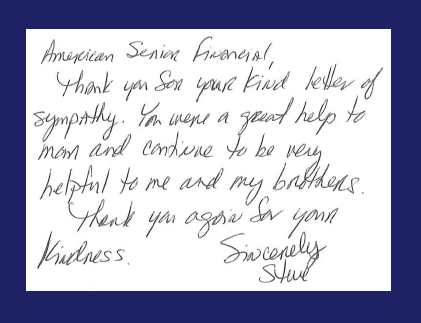 American Senior Financial,
Thank you for your kind letter of
sympathy. You were a great help to
mom and continue to be very
helpful to me and my brothers.
Thank you again for your
kindness.
Sincerely
Steve